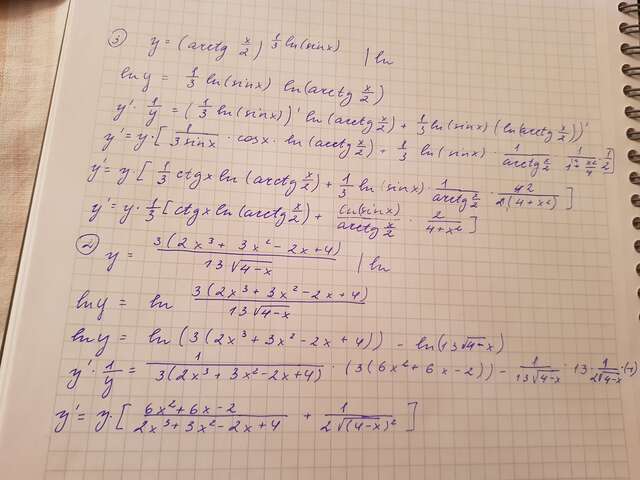 ③ y = (arctg x/2)^(1/3 ln(sinx)) | ln
ln y = 1/3 ln(sinx) ln(arctg x/2)
y' · 1/y = (1/3 ln(sinx))' ln(arctg x/2) + 1/3 ln(sinx) (ln(arctg x/2))'
y' = y [ 1/(3 sinx) · cosx · ln(arctg x/2) + 1/3 ln(sinx) · 1/(arctg x/2) · 1/(1+x²/4) · 1/2 ]
y' = y · [ 1/3 ctgx ln(arctg x/2) + 1/3 ln(sinx) · 1/(arctg x/2) · 4²/(2(4+x²)) ]
y' = y · 1/3 [ ctgx ln(arctg x/2) + ln(sinx)/(arctg x/2) · 2/(4+x²) ]
② y = 3(2x³ + 3x² - 2x + 4)/(13√(4-x)) | ln
ln y = ln 3(2x³ + 3x² - 2x + 4)/(13√(4-x))
ln y = ln(3(2x³ + 3x² - 2x + 4)) - ln(13√(4-x))
y' · 1/y = 1/(3(2x³ + 3x² - 2x + 4)) · (3(6x² + 6x - 2)) - 1/(13√(4-x)) · 13 · 1/(2√(4-x)) · (-1)
y' = y [ (6x² + 6x - 2)/(2x³ + 3x² - 2x + 4) + 1/(2√((4-x)²)) ]